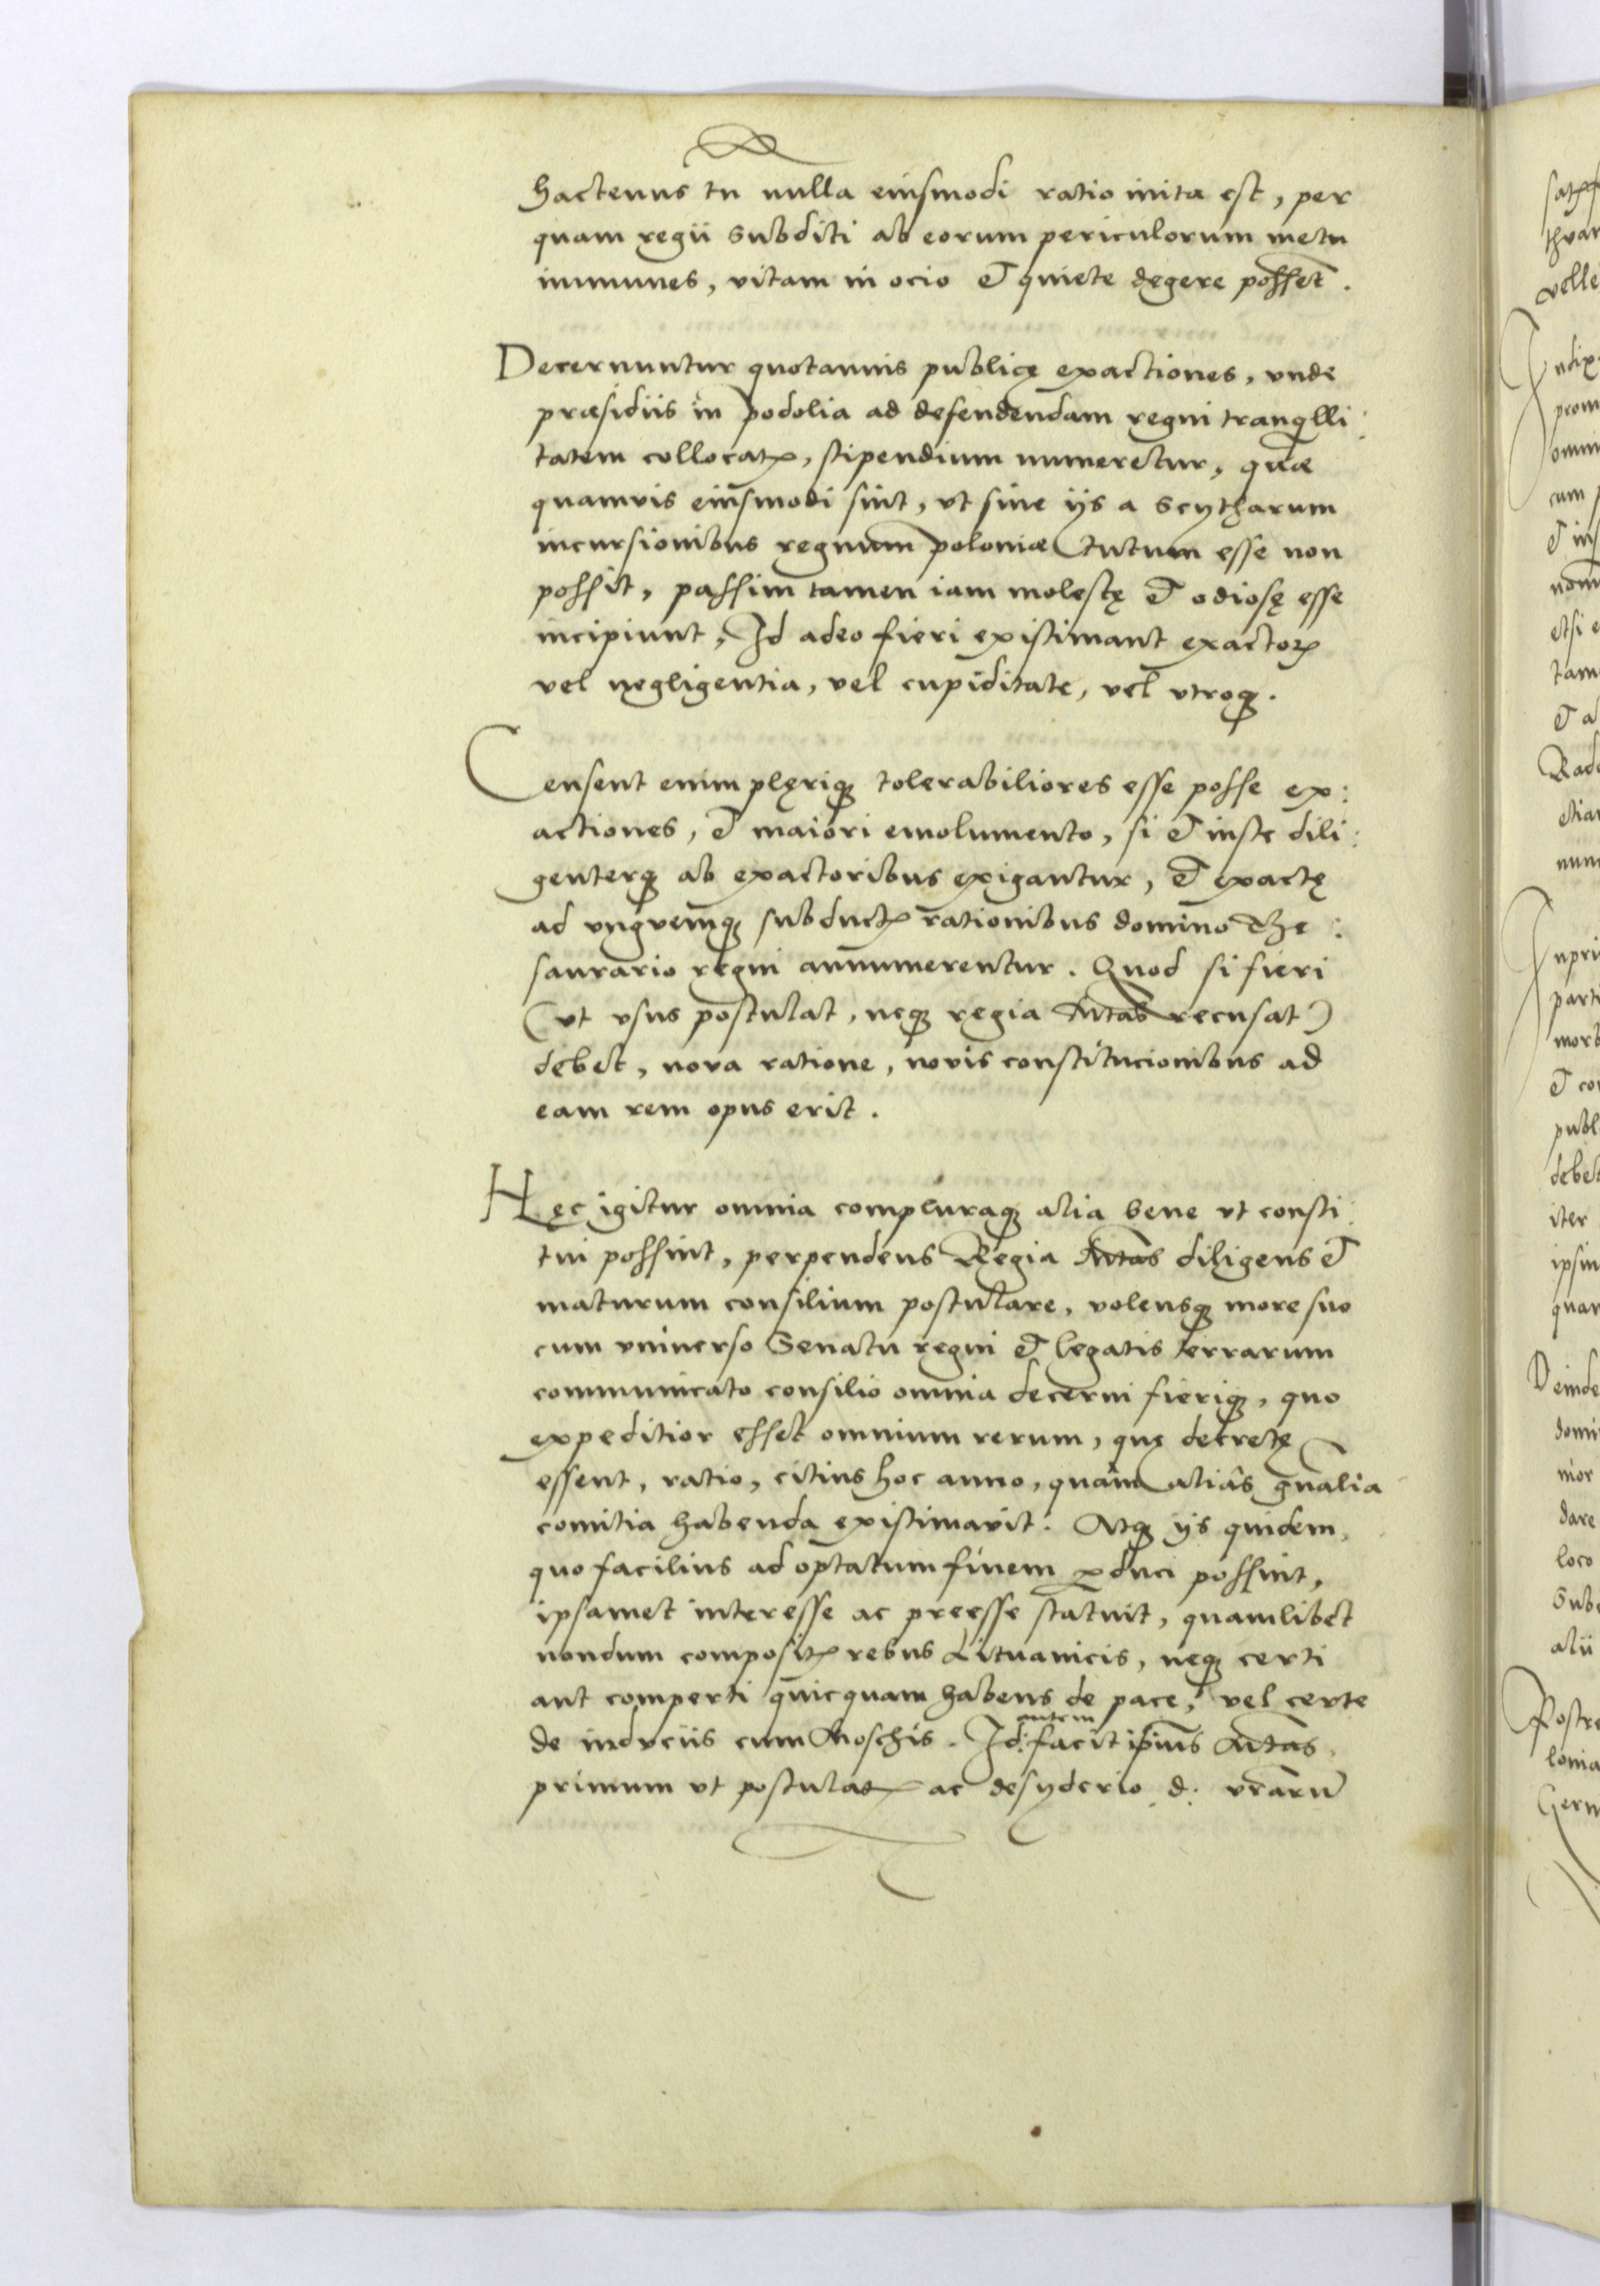 hactenus tn nulla eiusmodi ratio inita est, per
quam regii subditi ab eorum periculorum metu
immunes, vitam in ocio et quiete degere possēt.
Decernuntur quotannis publicę exactiones, vnde
præsidiis in podolia ad defendendam regni tranqlli:
tatem collocatꝭ, stipendium numeretur, quæ
quamvis eiusmodi sint, vt sine ijs a Scytharum
incursionibus regnum poloniæ tutum esse non
possit, passim tamen iam molestę et odiosę esse
incipiunt, Id adeo fieri existimant exactoꝝ
vel negligentia, vel cupiditate, vel vtroqꝫ.
Censent enim plęriqꝫ tolerabiliores esse posse ex:
actiones, et maiori emolumento, si et iuste dili:
genterqꝫ ab exactoribus exigantur, et exactę
ad vnguemqꝫ subductꝭ rationibus domino The:
saurario regni annumerentur. Quod si fieri
(vt vsus postulat, neqꝫ regia Mtas recusat)
debet, nova ratione, novis constitucionibus ad
eam rem opus erit.
Hęc igitur omnia compluraqꝫ alia bene vt consti:
tui possint, perpendens Regia Mtas diligens et
maturum consilium postulare, volensqꝫ more suo
cum vniuerso Senatu regni et legatis terrarum
communicato consilio omnia decerni fieriqꝫ, quo
expeditior esset omnium rerum, quę decretę
essent, ratio, citius hoc anno, quàm aliâs gn̄alia
comitia habenda existimavit. Atqꝫ ijs quidem,
quo facilius ad optatum finem ꝑduci possint,
ipsamet interesse ac preesse statuit, quamlibet
nondum compositꝭ rebus Lituanicis, neqꝫ certi
aut comperti quicquam habens de pace, vel certe
de induciis cum Moschis. Id: autem facit ipsius Mtas,
primum vt postulatꝭ ac desyderio d: vrārū